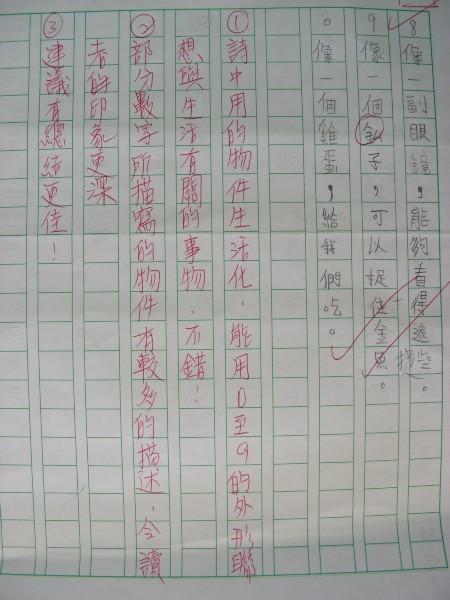 8像一副眼鏡，能夠看得遠些。
9像一個釟子，可以捉住金魚。
0像一個雞蛋，給我們吃。
①詩中用的物件生活化，能用0至9的外形聯
想與生活有關的事物，不錯！
②部分數字所描寫的物件有較多的描述，令讀
者的印象更深
③建議有總結更佳！